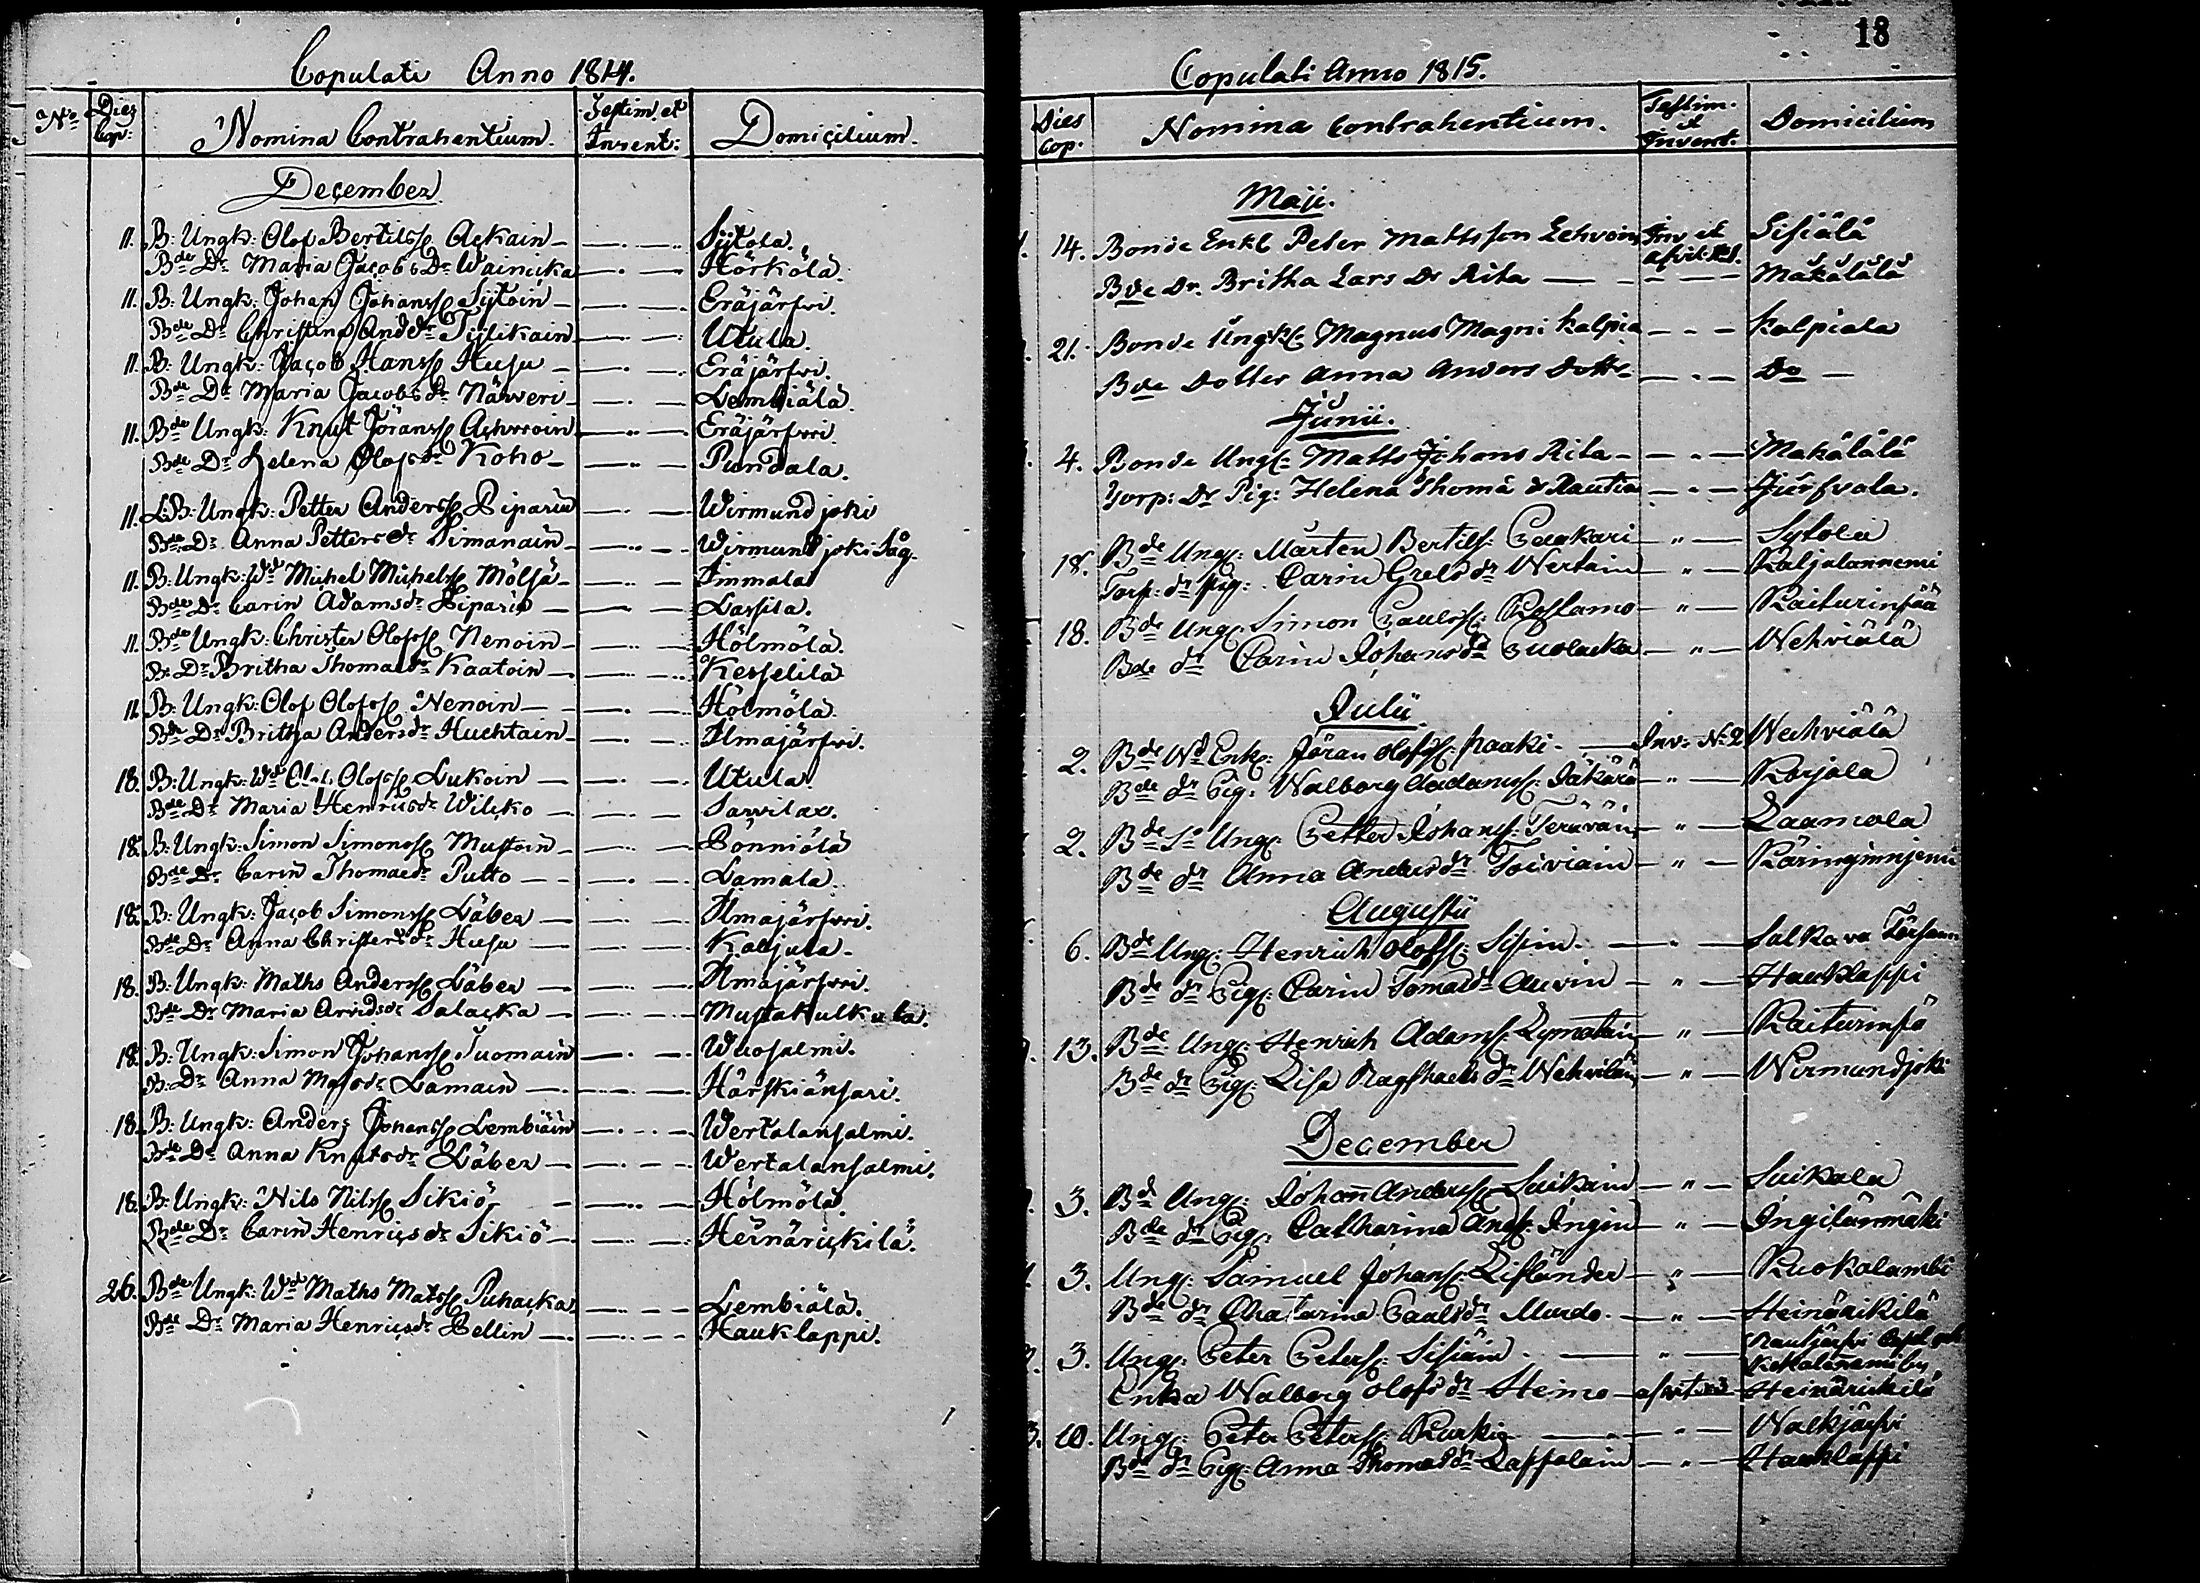 Copulati Anno 1814.
No Dies Cop: Nomina Contrahentium. Testim. et Invent: Domicilium.
December
11. B: Ungk: Olof Bertilss. Ackain — Sÿtola.
Bde Dr Maria Jacobs Dr Wainicka — Hörkölä.
11. B: Ungk: Johan Johanss. Sytoin — Eräjärfvi.
Bde Dr Christina And dr Tiilikain — Utula.
11. B: Ungk: Jacob Hanss. Husu — Eräjärfvi.
Bde Dr Maria Jacobs dr Närveri — Lembiälä.
11. Bde Ungk: Knut Jöranss. Achvoin — Eräjärfvi.
Bde Dr Helena Olofs dr Koho — Pundala.
11. L.B: Ungk: Petter Anderss. Ripain — Wirmundjoki
Bde Dr Anna Petters dr Simanain — Wirmundjoki Såg.
11. B: Ungk: Wd Michel Michelss. Mölsä — Immala
Bde Dr Carin Adams dr — Lassila.
11. Bde Ungk: Christer Olofss. Nenoin — Hölmölä.
B: Dr Britha Thomae dr Kaatoin — Kesselilä
11. B: Ungk: Olof Olofss. Nenoin — Hölmölä.
Bde Dr Britha Anders dr Huchtain — Ilmajärfvi.
18. B: Ungk: Wd Olof Olofss. Lukoin — Utula.
Bde Dr Maria Henrics dr Wilcko — Sarvilax.
18. B: Ungk: Simon Simonss. Mustoin — Pönniölä
Bde Dr Carin Thomae dr Putto — Lamala.
18. B: Ungk: Jacob Simonss. Läber — Ilmajärfvi.
Bde Dr Anna Christers dr Husu — Kaljula.
18. B: Ungk: Maths Anderss. Läber — Ilmajärfvi.
Bde Dr Maria Arvids dr Salacka — Mustakulkula.
18. B: Ungk: Simon Johanss. Tuomain — Wuosalmi.
B: Dr Anna Mats dr Lamain — Härskiänsari.
18. B: Ungk: Anders Johanss. Lembiäin — Wertalansalmi.
Bde Dr Anna Knuts dr Läber — Wertalansalmi.
18. B: Ungk: Nils Nilss. Sikiö — Hölmölä.
Bde Dr Carin Henrics dr Sikiö — Heinärickilä.
26. Bde Ungk: Wd Maths Matss. Puhacka — Lembiälä.
Bde Dr Maria Henrics dr Pellin — Hauklappi.
18
Copulati Anno 1815.
Dies Cop. Nomina Contrahentium. Testim. et Invent. Domicilium
Maji.
14. Bonde Enkl Peter Mattsson Lehvoin Inv et Sisiälä
Bde Dr. Britha Lars Dr Rita — Mäkälälä
21. Bonde Ungk: Magnus Magni Kalpia — Kalpiala
Bde Dotter Anna Anders Dotts — Do —
Junii.
4. Bonde Ung: Matts Johans Rita — Makälälä
Torp: Dr Pig: Helena Thomä dr Rautia — Jurfvala.
18. Bde Ung: Mårten Bertils: Paakari — " — Sytola
Torp: dr pig: Carin Grels dr Wertain — " — Kaljalannemi
18. Bde Ung: Simon Paulss: Koslamo — " — Raiturinpää
Bde dr Carin Johans dr Puolacka — " — Wehviälä
Julii.
2. Bde Wd Enk: Jöran Olofss: Paaki — Inv: No 2 Wehviälä
Bde dr Pig: Walborg Aadamss: Jäkärä — " — Korjola
2. Bde So Ung: Petter Johanss: Teräväin — " — Laamola
Bde dr Anna Anders dr Toiviain — " — Käringinnjemi
Augustii
6. Bde Ung: Henrich Olofss: Sisiin — Salkava
Bde dr Pig: Carin Tomas dr Auvin — " — Hauklappi
13. Bde Ung: Henrich Adamss: Lymatain — " — Raiturinpä
Bde dr Pig: Lisa Magshaels dr Wehviläin — " — Wirmundjoki
December
3. Bd Ung: Johann Anderss: Suikain — " — Suikala
Bde dr Pig: Catharina Ands: Ingin — " — Ingilänmäki
3. Ung: Samuel Johanss: Lisländer — " — Kuokalambi
Bde dr Chatarina Paals dr Murdo — " — Heinärikilä
3. Ung: Peter Peterss: Sisiäin — " — Rautjärfvi Capel
Kokolanemi by
Enka Walborg Olofs dr Heimo — Heinärickilä
10. Ung: Peter Peterss: Kurkiz — Walkjärfvi
Bde dr Pig: Anna Thomas dr Lappalain — Hauklappi